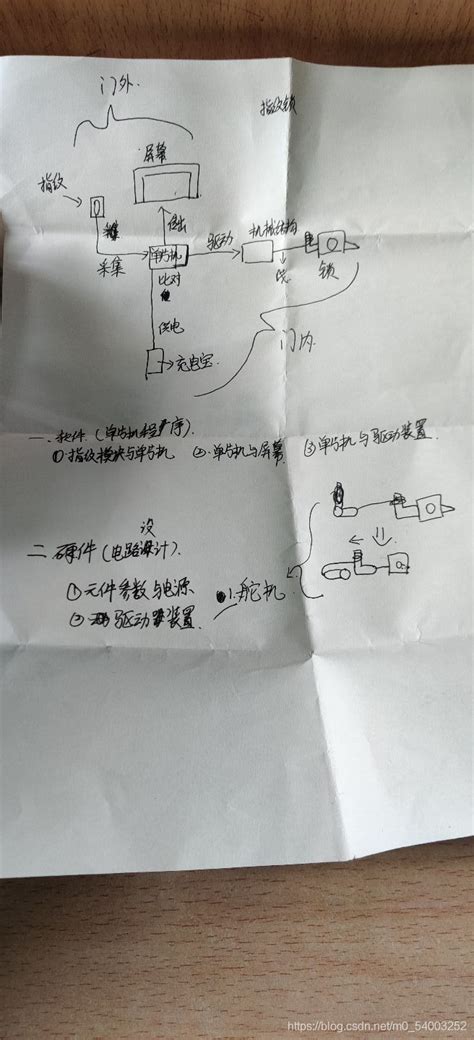 门外
指纹锁
屏幕
指纹
输出
采集
单片机
驱动
机械结构
比对
锁
供电
门内
充电宝
一. 软件 (单片机程序).
①.指纹模块与单片机 ②.单片机与屏幕 ③单片机与驱动装置
设
二 硬件 (电路设计).
①元件参数与电源
②驱动装置
1.舵机
https://blog.csdn.net/m0_54003252